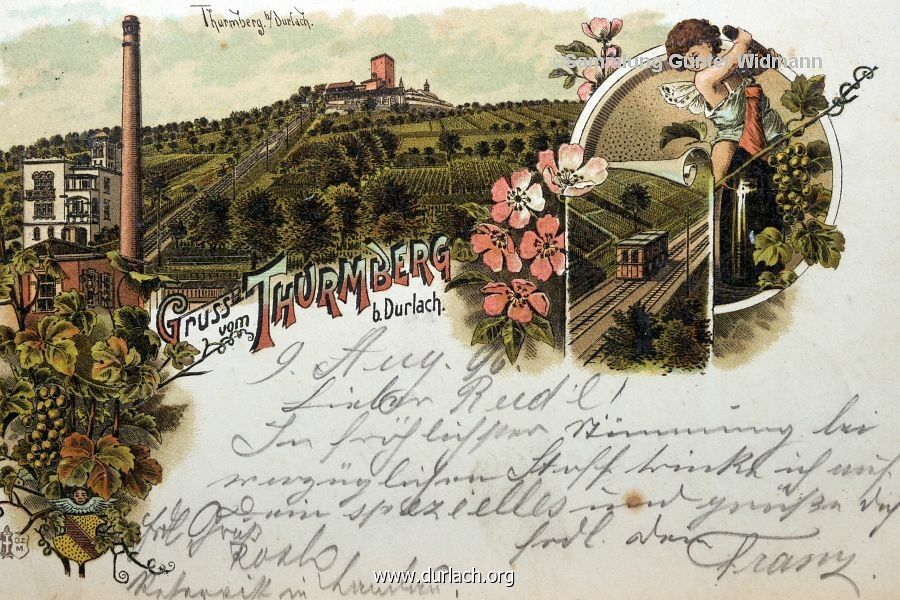 Thurmberg b/Durlach.
©Sammlung Günter Widmann
Gruss vom THURMBERG
b. Durlach.
9. Aug. 96.
Lieber Rudel!
In fröhlichster Stimmung bei
vorzüglichen Stoff trinke ich auf
dein spezielles und grüße Dich
frdl. der
Franz.
frdl. Gruß
in Landau.
ÖZ
M
www.durlach.org